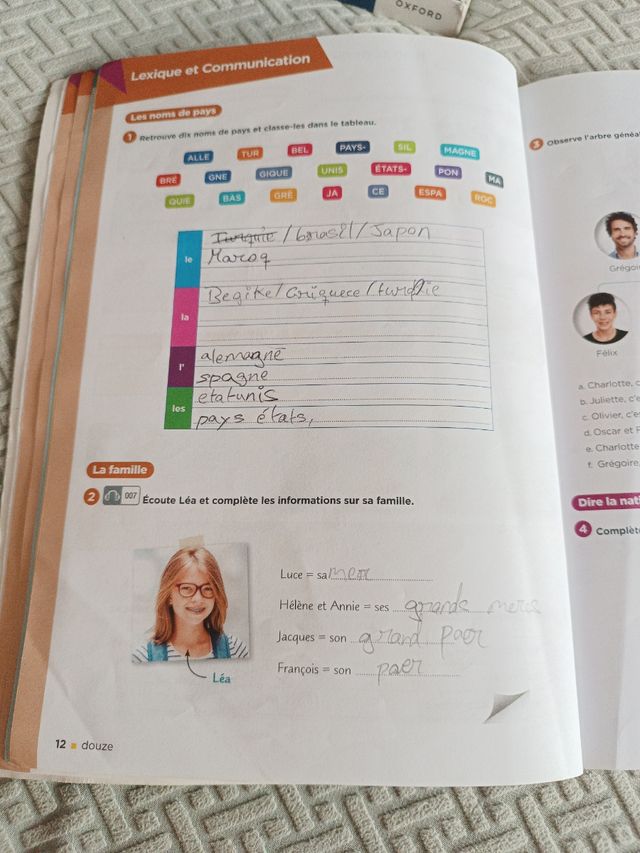 OXFORD
Lexique et Communication
Les noms de pays
1 Retrouve dix noms de pays et classe-les dans le tableau.
ALLE TUR BEL PAYS- SIL MAGNE
BRÉ GNE GIQUE UNIS ÉTATS- PON MA
QUIE BAS GRÈ JA CE ESPA ROC
le Turquie / brasil / Japon
Maroq
la Begike / Criquece / turqie
l' alemagne
spagne
les etatunis
pays états,
La famille
2 007 Écoute Léa et complète les informations sur sa famille.
Luce = sa mer
Hélène et Annie = ses grands mers
Jacques = son grand paer
François = son paer
Léa
12 douze
3 Observe l'arbre généa
Grégoi
Félix
a. Charlotte, c
b. Juliette, c'e
c. Olivier, c'es
d. Oscar et F
e. Charlotte
f. Grégoire,
Dire la nat
4 Complèt